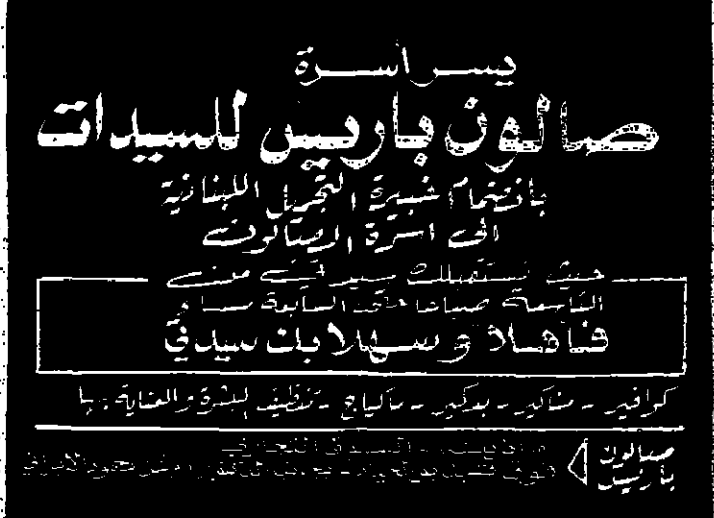 يسر أسرة
صالون باريس للسيدات
بانضمام خبيرة التجميل اللبنانية
الى اسرة الصالون
حيث نستقبلك سيدتي من
التاسعة صباحا حتى السابعة مساء
فأهلا وسهلا بك سيدتي
كوافير - مناكير - بدكير - ماكياج - تنظيف البشرة والعناية بها
صالون
باريس